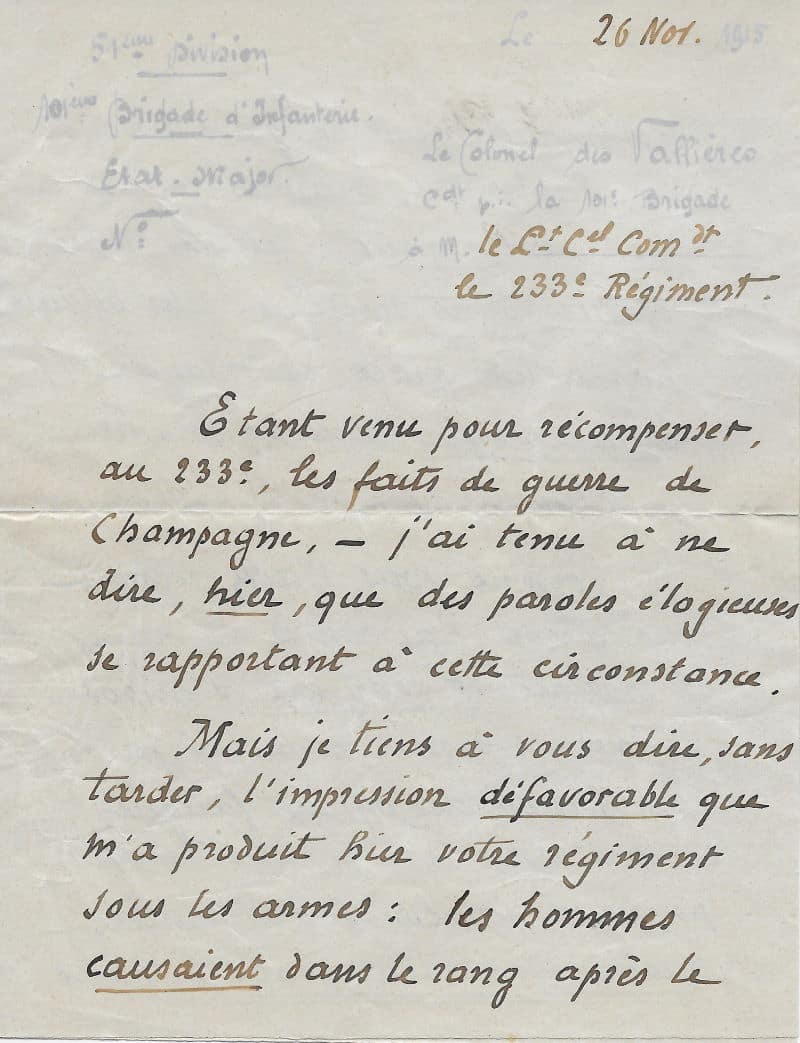 51ème Division
Le 26 Nov. 1915
101ème Brigade d'Infanterie.
Etat-Major.
Nº
Le Colonel des Vallières
Cdt p.i. la 101e Brigade
à M. le Lt Cel Comdt
le 233e Régiment.
Etant venu pour récompenser,
au 233e, les faits de guerre de
Champagne, — j'ai tenu à ne
dire, hier, que des paroles élogieuses
se rapportant à cette circonstance.
Mais je tiens à vous dire, sans
tarder, l'impression défavorable que
m'a produit hier votre régiment
sous les armes : les hommes
causaient dans le rang après le